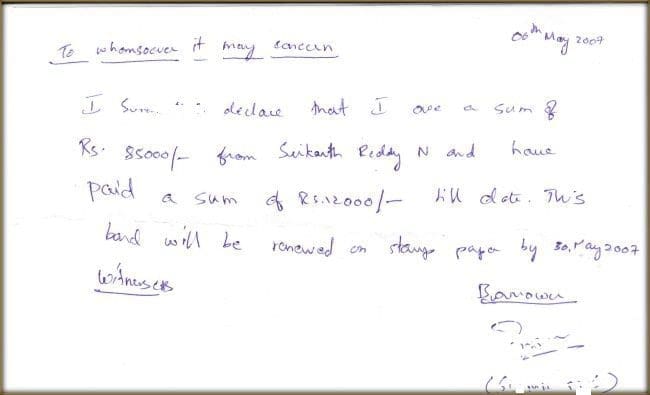 To whomsoever it may concern
06th May 2007
I declare that I owe a sum of
Rs. 85000/- from Srikanth Reddy N and have
paid a sum of Rs.12000/- till date. This
bond will be renewed on stamp paper by 30, May 2007
Witnesses
Borrower